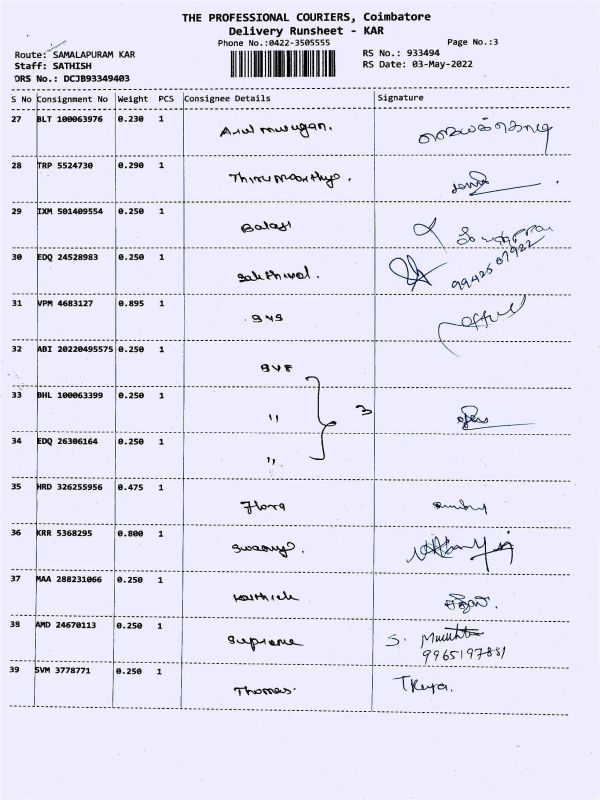 THE PROFESSIONAL COURIERS, Coimbatore
Delivery Runsheet - KAR
Phone No.:0422-3505555 Page No.:3
Route: SAMALAPURAM KAR RS No.: 933494
Staff: SATHISH RS Date: 03-May-2022
DRS No.: DCJB93349403
S No Consignment No Weight PCS Consignee Details Signature
27 BLT 100063976 0.230 1 Arul murugan.
28 TRP 5524730 0.290 1 Thirumoorthy.
29 IXM 501409554 0.250 1 Balaji
30 EDQ 24528983 0.250 1 Sakthivel.
31 VPM 4683127 0.895 1
32 ABI 20220495575 0.250 1
33 BHL 100063399 0.250 1 " 3
34 EDQ 26306164 0.250 1 "
35 HRD 326255956 0.475 1 Flora
36 KRR 5368295 0.800 1 Swamy.
37 MAA 288231066 0.250 1 Karthick
38 AMD 24670113 0.250 1 Supreme S.
9965197881
39 SVM 3778771 0.250 1 Thomas.